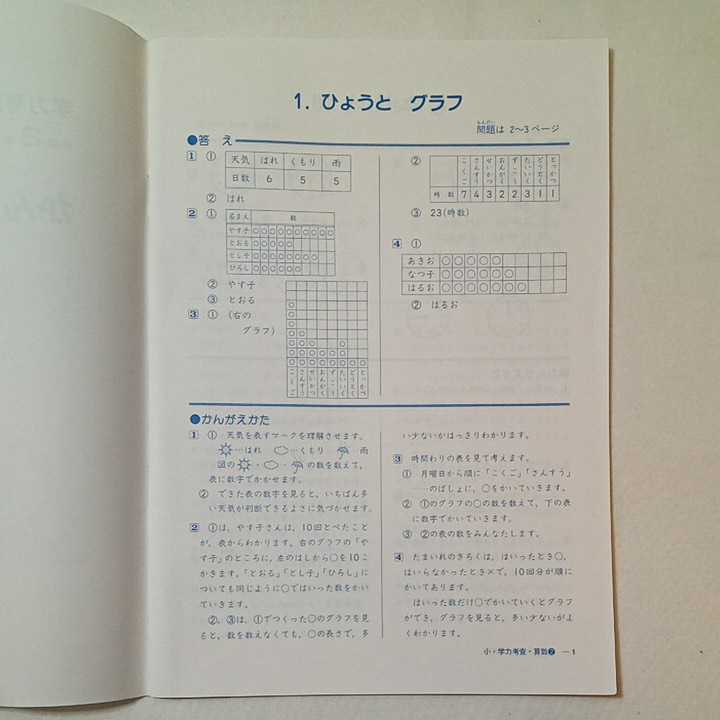 1. ひょうと グラフ
もんだい
問題は 2〜3ページ
●答 え
1 ① 天気 はれ くもり 雨
日数 6 5 5
② はれ
2 ① なまえ 数
やす子 ○○○○○○○○○○
とおる ○○○○○
とし子 ○○○○○○○○
ひろし ○○○○○○
② やす子
③ とおる
3 ① (右の
グラフ)
こくご さんすう せいかつ おんがく ずこう たいいく どうとく とっかつ
② こくご さんすう せいかつ おんがく ずこう たいいく どうとく とっかつ
時数 7 4 3 2 2 3 1 1
③ 23(時数)
4 ①
あきお ○○○○○
なつ子 ○○○○○○
はるお ○○○○○○○
② はるお
●かんがえかた
1 ① 天気を表すマークを理解させます。
…はれ …くもり …雨
図の ・ ・ の数を数えて,
表に数字でかかせます。
② できた表の数字を見ると,いちばん多
い天気が判断できるよさに気づかせます。
2 ①は,やす子さんは,10回とべたこと
が,表からわかります。右のグラフの「や
す子」のところに,左のはしから○を10こ
かきます。「とおる」「とし子」「ひろし」に
ついても同じように○ではいった数をかい
ていきます。
②,③は,①でつくった○のグラフを見
ると,数を数えなくても,○の長さで,多
い少ないかはっきりわかります。
3 時間わりの表を見て考えます。
① 月曜日から順に「こくご」「さんすう」
…のばしょに,○をかいていきます。
② ①のグラフの○の数を数えて,下の表
に数字でかいていきます。
③ ②の表の数をみんなたします。
4 たまいれのきろくは,はいったとき○,
はいらなかったとき×で,10回分が順に
かいてあります。
はいった数だけ○でかいていくとグラフ
ができ,グラフを見ると,多い少ないがよ
くわかります。
小・学力考査・算数❷ —1